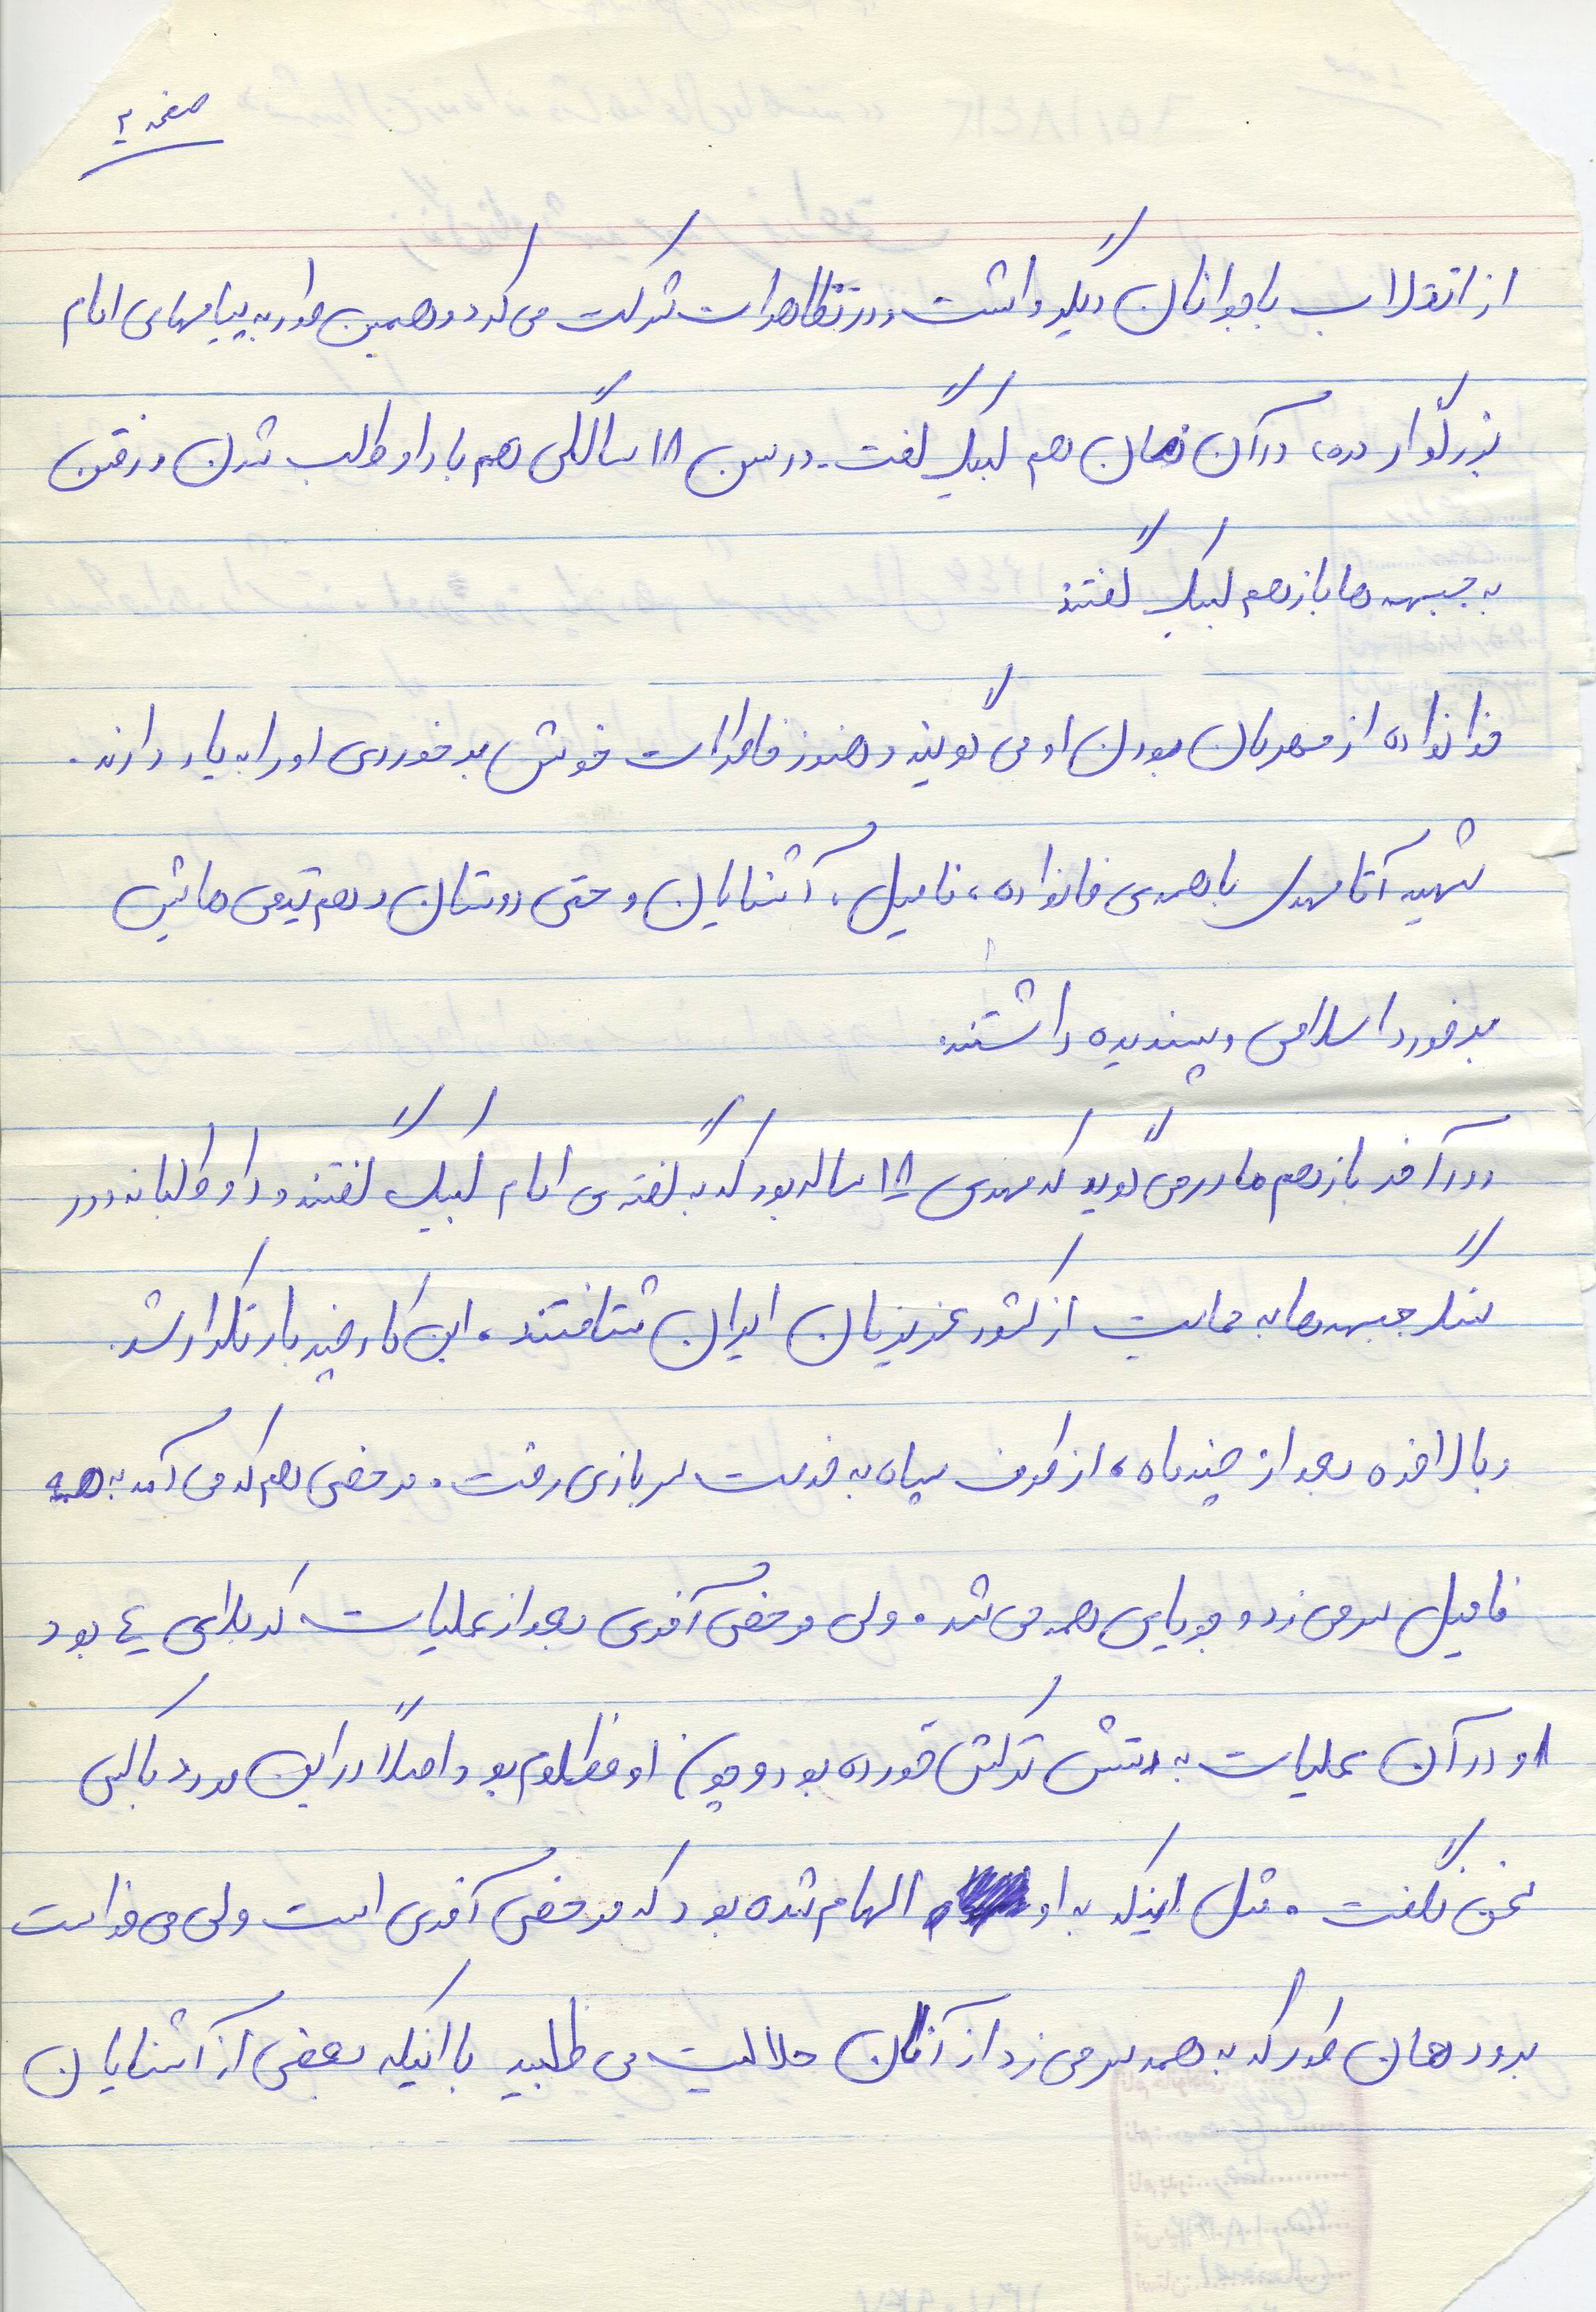 صفحه ۲
از انقلاب با جوانان دیگر داشت و در تظاهرات شرکت می کرد و همین طور به پیامهای امام
بزرگوار (ره) در آن زمان هم لبیک گفت. در سن ۱۸ سالگی هم با داوطلب شدن و رفتن
به جبهه ها باز هم لبیک گفتند
خانواده از مهربان بودن او می گویند و هنوز خاطرات خوش برخوردی او را به یاد دارند.
شهید آقا مهدی با همه ی خانواده، فامیل، آشنایان و حتی دوستان و هم تیمی هایش
برخورد اسلامی و پسندیده داشتند.
و در آخر باز هم مادر می گوید که مهدی ۱۸ ساله بود که به گفته ی امام لبیک گفتند و داوطلبانه در
سنگر جبهه ها به حمایت از کشور عزیزمان ایران شتافتند. این کار چند بار تکرار شد.
و بالاخره بعد از چند ماه، از طرف سپاه به خدمت سربازی رفت. مرخصی هم که می آمد به همه
فامیل سر می زد و جویای همه می شد. ولی مرخصی آخری بعد از عملیات کربلای ٤ بود
او در آن عملیات به دستش ترکش خورده بود و چون او مظلوم بود اصلاً در این مورد با کسی
سخن نگفت. مثل اینکه به او الهام شده بود که مرخصی آخری است ولی می خواست
برود همان طور که به همه سر می زد از آنان حلالیت می طلبید با اینکه بعضی از آشنایان